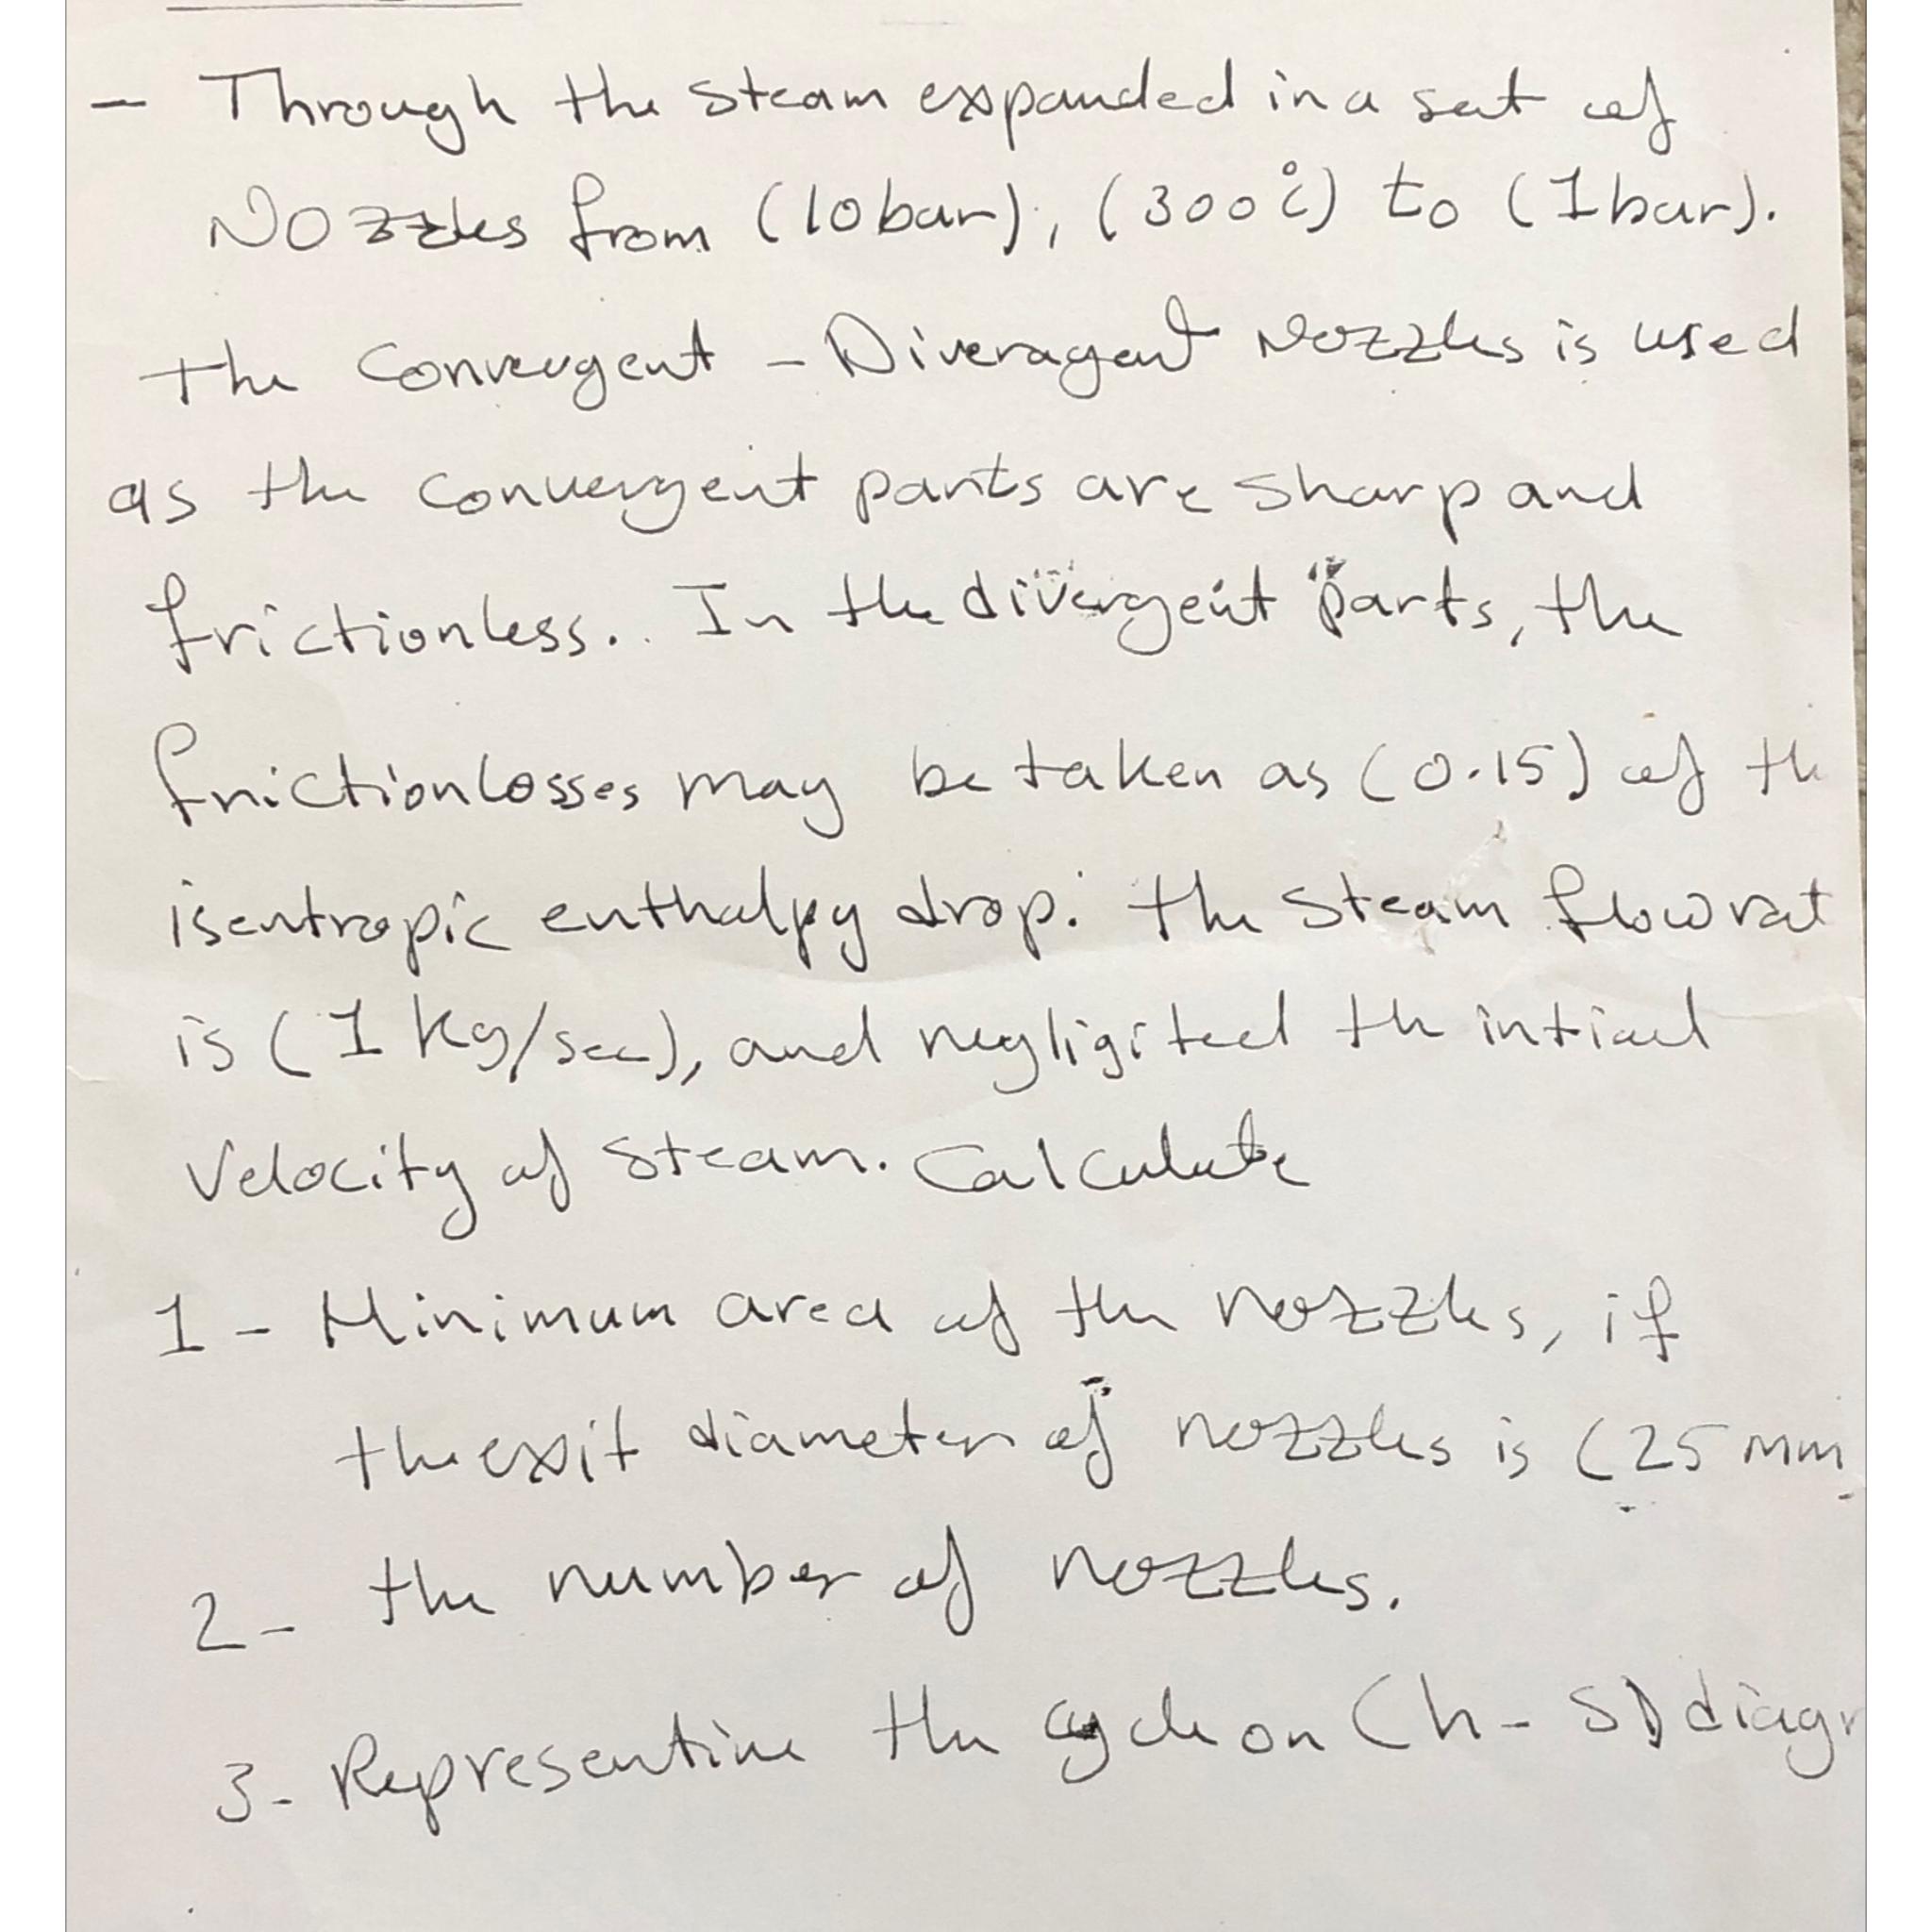 - Through the steam expanded in a set of
Nozzles from (10 bar), (300°c) to (1 bar).
the Convergent - Diveragent Nozzles is used
as the convergent parts are sharp and
frictionless.. In the divergent parts, the
friction losses may be taken as (0.15) of th
isentropic enthalpy drop. the steam flow rat
is (1 kg/sec), and negligited th intial
Velocity of steam. Calculate
1 - Minimum area of the nozzles, if
the exit diameter of nozzles is (25 mm
2 - the number of nozzles.
3 - Representine the cycle on (h - S) diagr